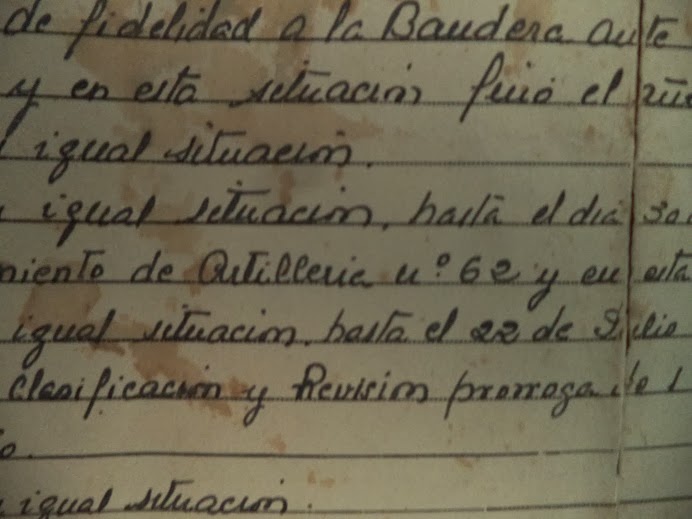 de fidelidad a la Bandera ante
y en esta situación finó el
igual situación.
igual situación, hasta el dia 30
miento de Artilleria nº 62 y en esta
igual situacion. hasta el 22 de Julio
Clasificacion y Revision prorroga de 1
o.
igual situacion.